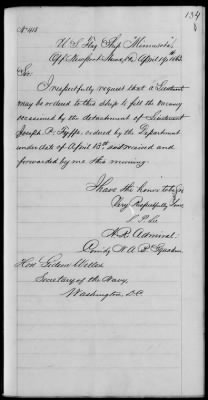 134
No 413
U.S. Flag Ship Minnesota,
Off Newport News, Va. April 19th 1863
Sir:
I respectfully request that a Lieutenant
may be ordered to this ship to fill the vacancy
occasioned by the detachment of Lieutenant
Joseph P. Fyffe, ordered by the Department
under date of April 13th and received and
forwarded by me this morning.
I have the honor to be, Sir,
Very Respectfully Yours,
S. P. Lee
A. R. Admiral
Comdg N. A. B. Squadron.
Hon. Gideon Welles
Secretary of the Navy,
Washington, D.C.